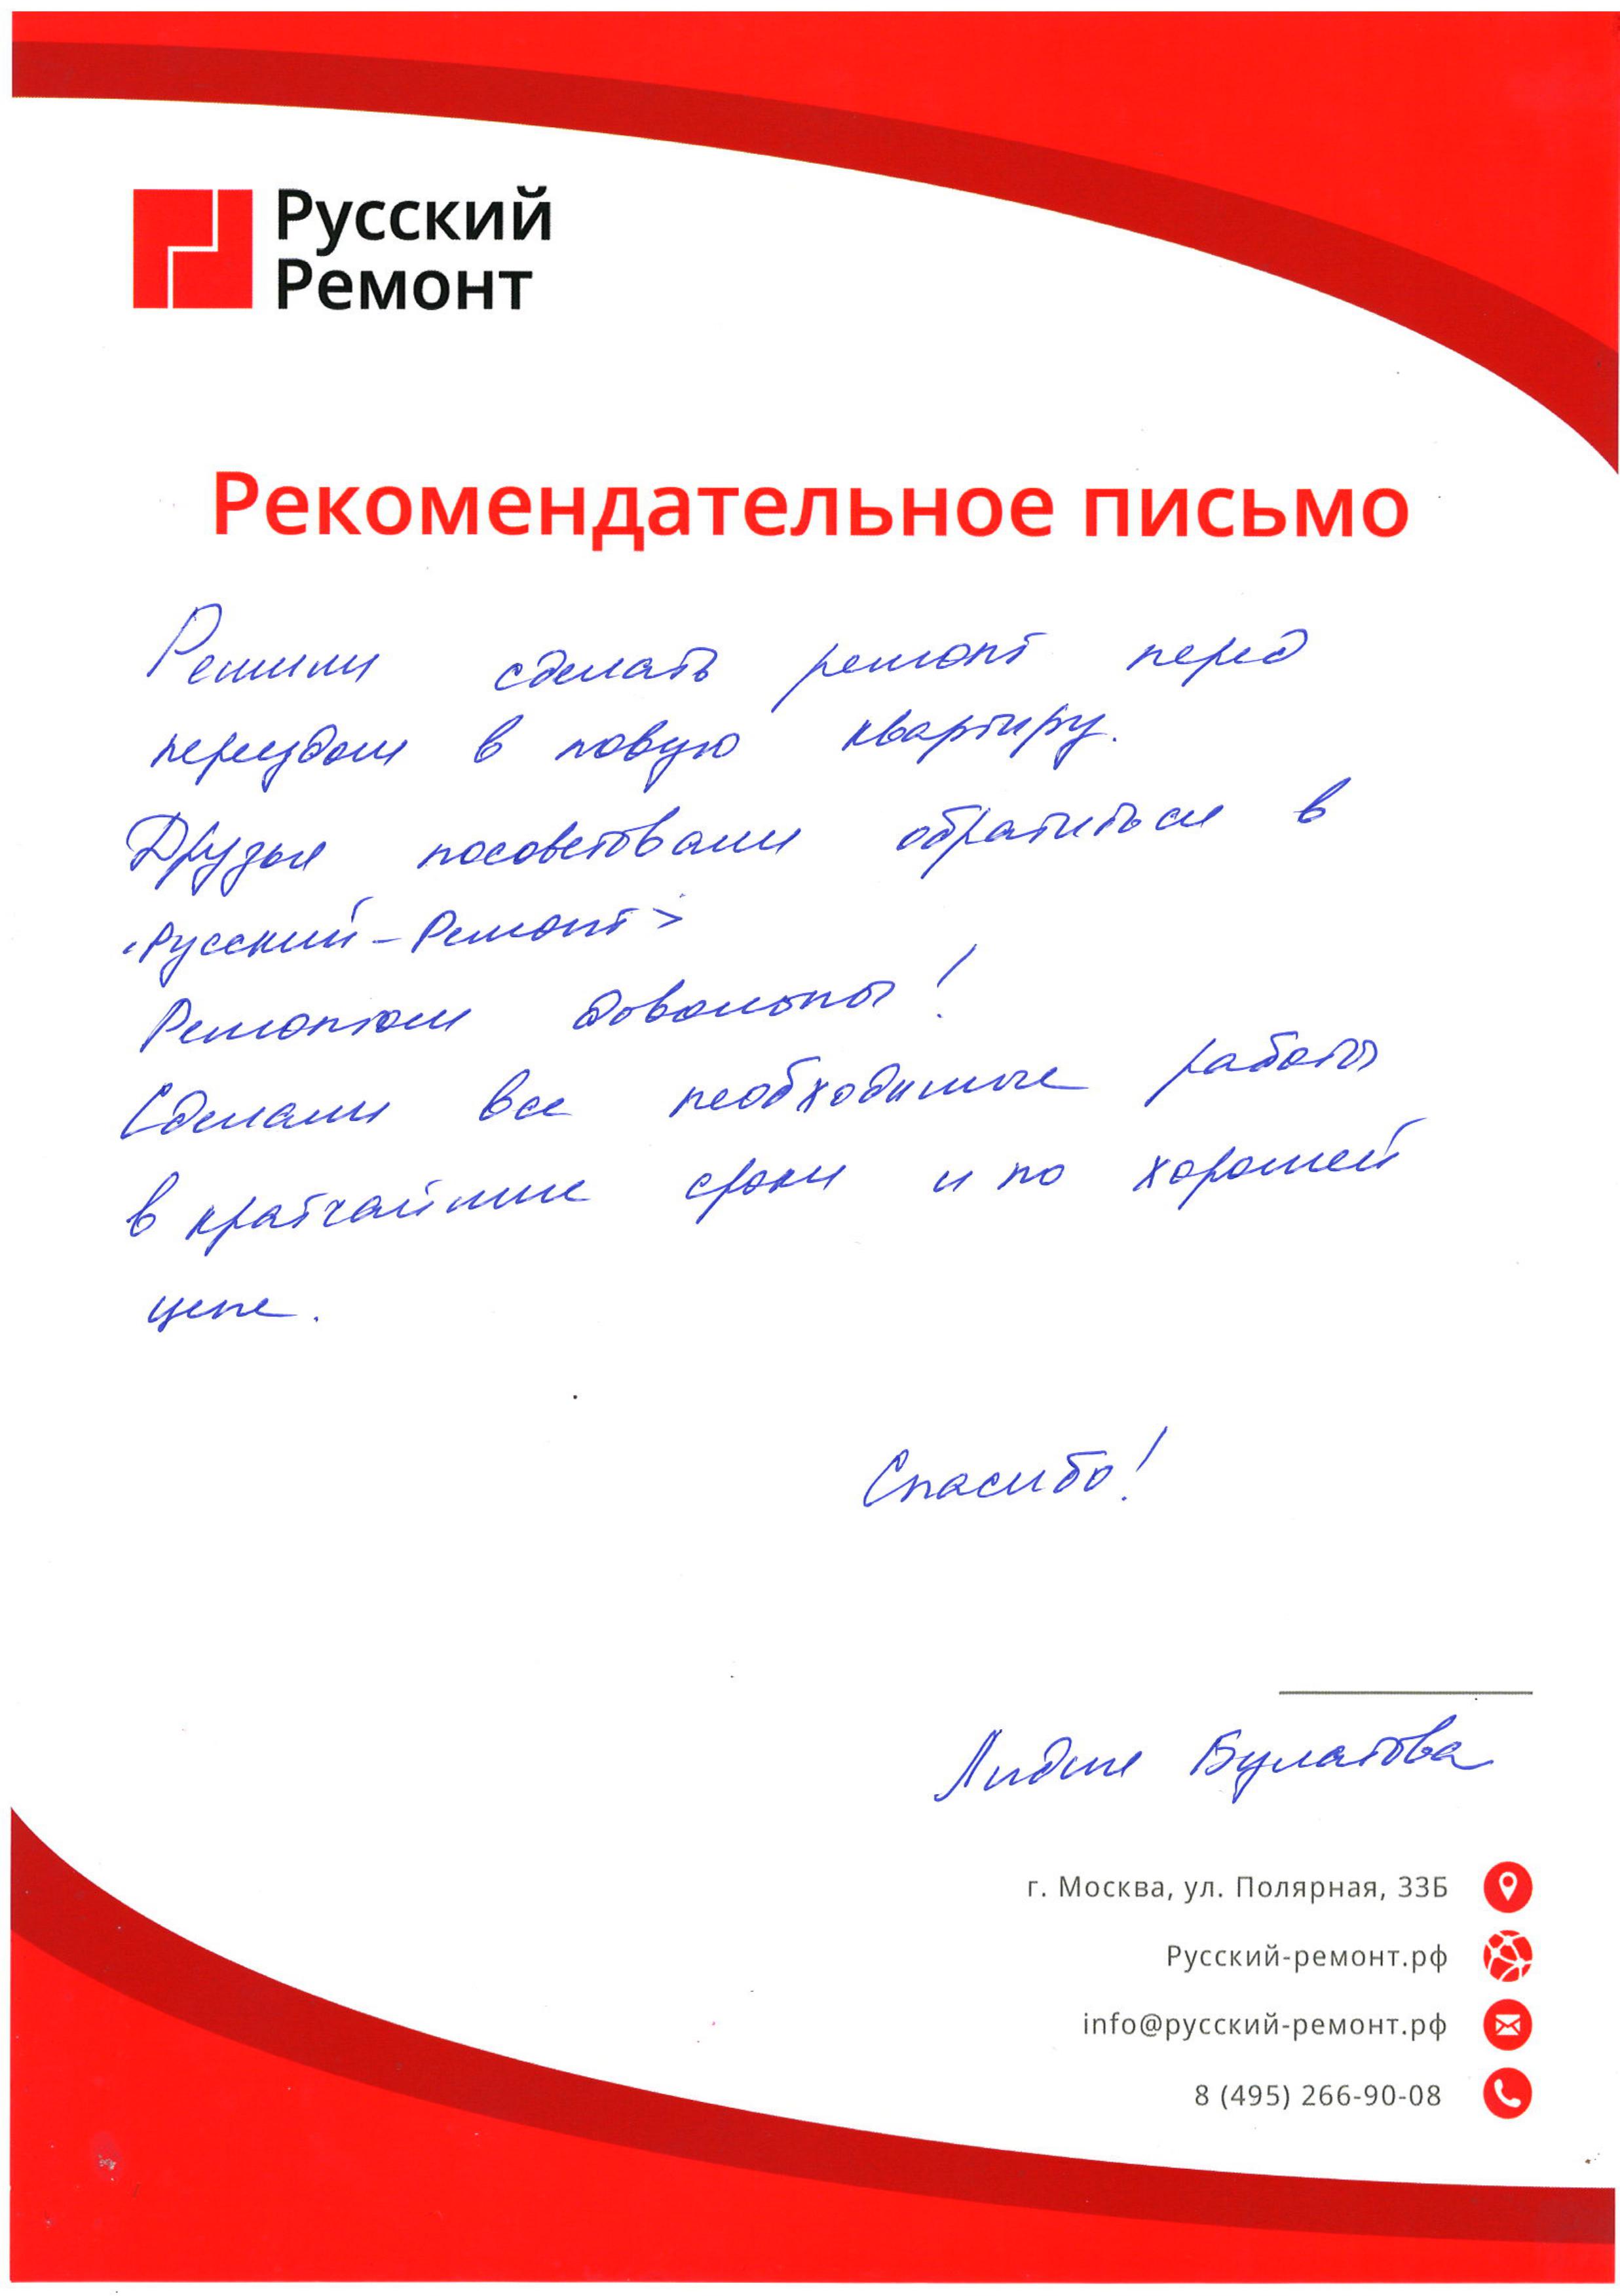 Русский
Ремонт
Рекомендательное письмо
Решили сделать ремонт перед
переездом в новую квартиру.
Друзья посоветовали обратиться в
<Русский-Ремонт>
Ремонтом довольны!
Сделали все необходимые работы
в кратчайшие сроки и по хорошей
цене.
Спасибо!
Лидия Булатова
г. Москва, ул. Полярная, 33Б
Русский-ремонт.рф
info@русский-ремонт.рф
8 (495) 266-90-08